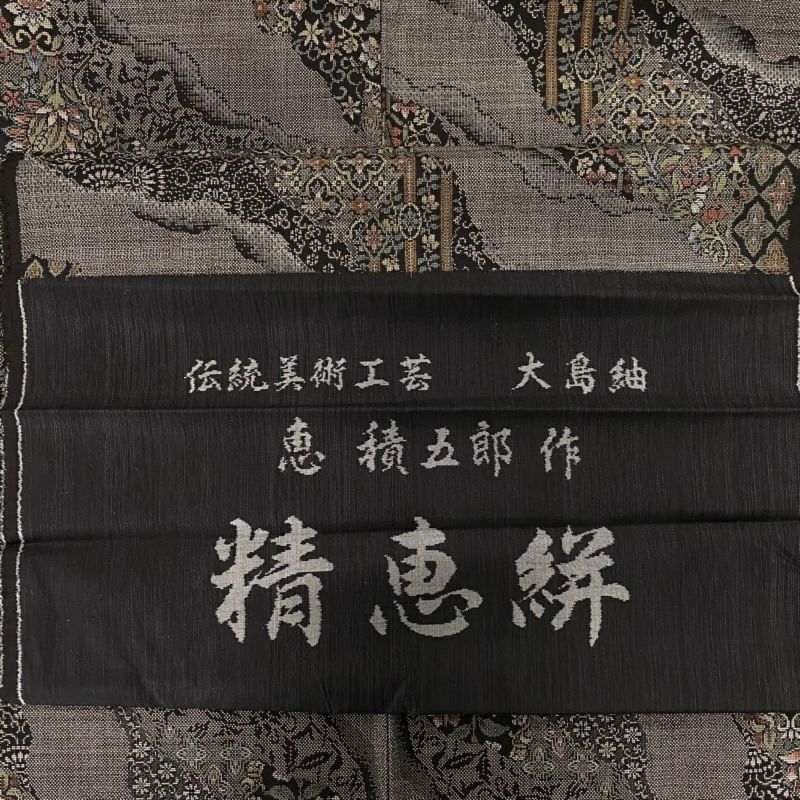 伝統美術工芸　大島紬
恵 積五郎 作
精恵絣